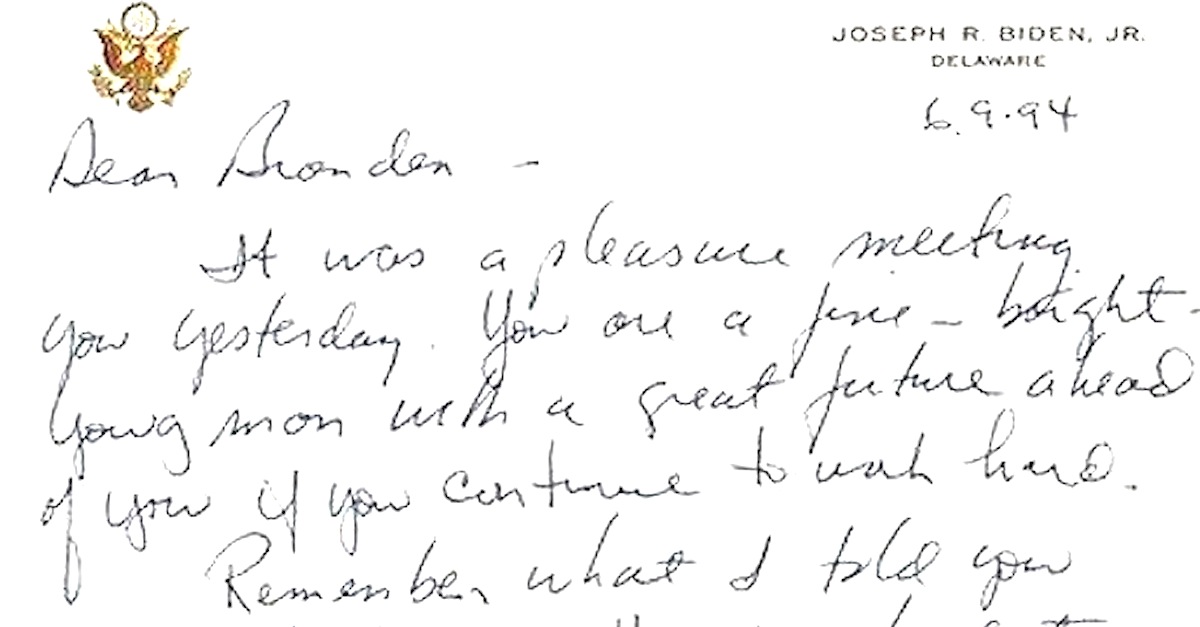 JOSEPH R. BIDEN, JR.
DELAWARE
6.9.94
Dear Branden -
It was a pleasure meeting
you yesterday. You are a fine - bright -
young man with a great future ahead
of you if you continue to work hard.
Remember what I told you